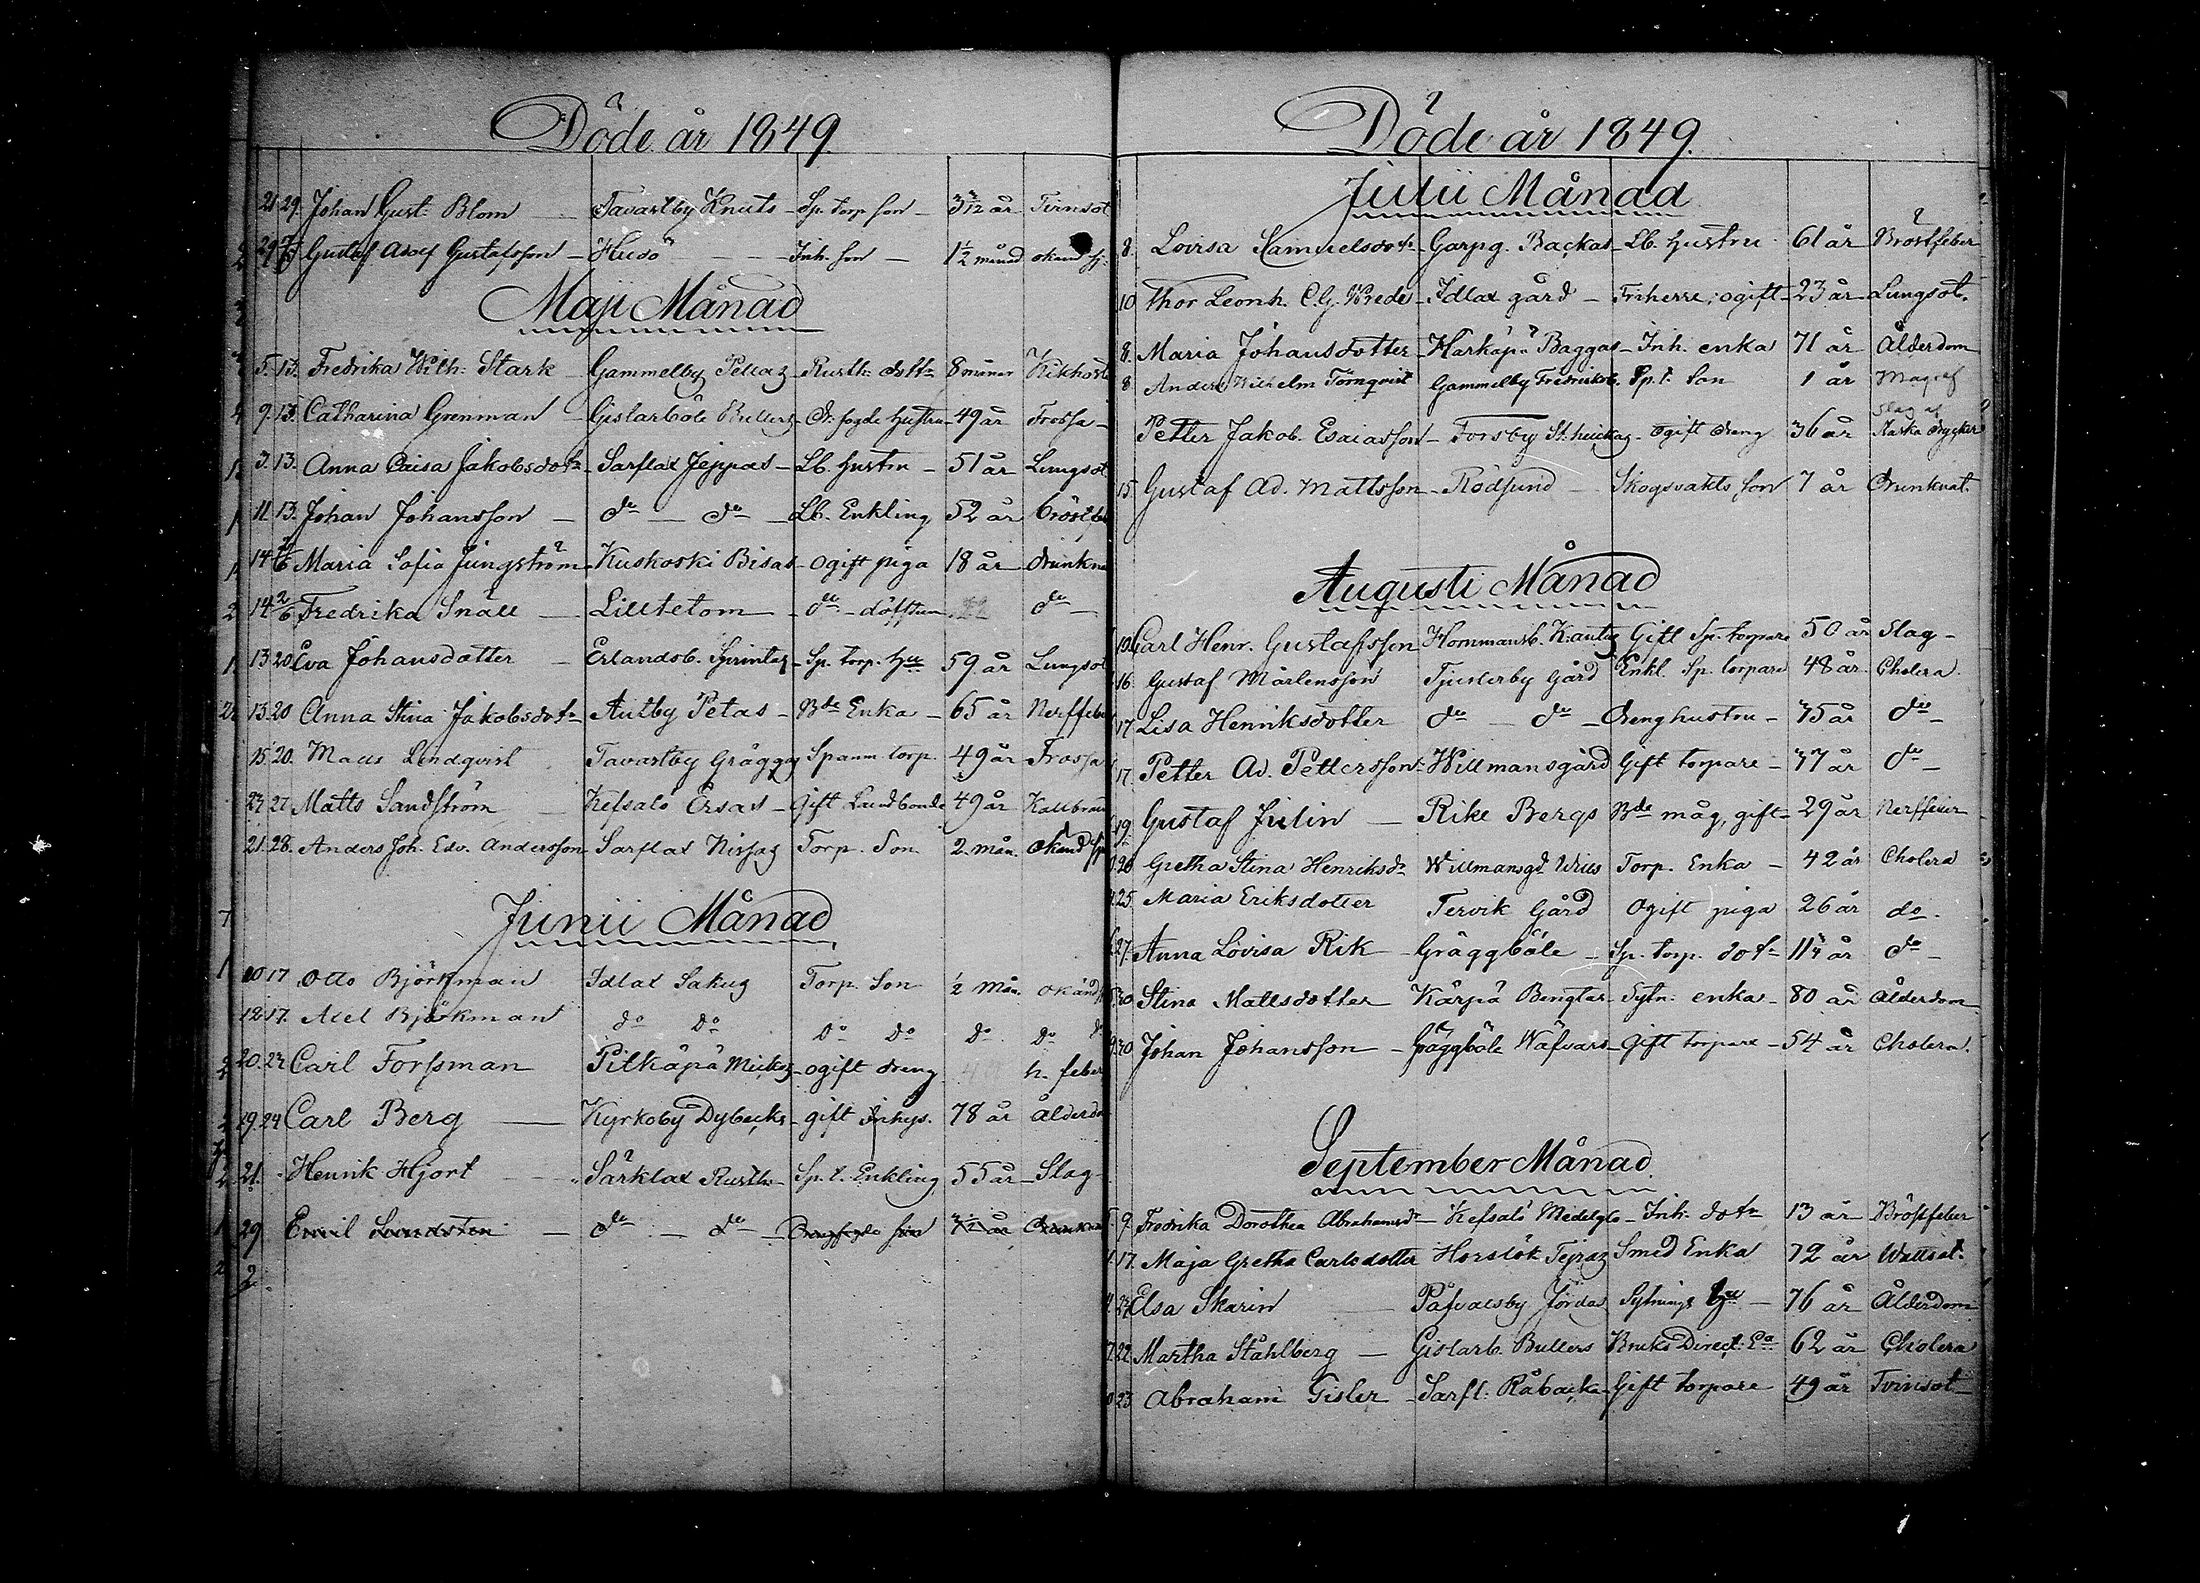 Döde år 1849.
21. 29. Johan Gust. Blom — Tavastby Knuts - Sp. torp. son - 3 3/12 år Tvinsot
29 Gustaf Adolf Gustafsson - Husö - - Inh. son - 1 1/2 månad okänd sj.
Maji Månad
5. 13. Fredrika Wilh. Stark Gammelby Pellas - Rusth. dottr 8 månar Kikhosta
9. 13. Catharina Grenman - Gislarböle Bullers - Dr. fogde hustru - 49 år Frossa -
3. 13. Anna Caisa Jakobsdotr - Sarflax Jeppas - Lb. hustru - 51 år Lungsot
11. 13. Johan Johansson — do — do — Lb. Enkling 52 år bröstfeb
14 Maria Sofia Ljungström - Kuskoski Bisas - ogift piga 18 år drunkna
14 2/6 Fredrika Snäll — Lilltetom - do - döfstum 22 do —
13. 20 Eva Johansdotter — Erlandsb. Sprintas - Sp. torp. hu 59 år Lungsot
13. 20 Anna Stina Jakobsdotr - Antby Petas - Bde Enka - 65 år Nerffeber
15. 20. Mats Lindqvist Tavastby Gräggas Spanm. torp. 49 år - Frossa
23. 27. Matts Sandström — Kefsalö Ersas - Gift Landbonde 49 år Kallbrand
21. 28. Anders Joh. Edv. Andersson Sarflax Nissas Torp. Son 2 mån. okänd sj
Junii Månad
10 17 Otto Björkman Idlax Sakus Torp. Son 1/2 mån. okänd sj
12. 17. Axel Björkman do do do do do do do
20. 23 Carl Forssman Pitkäpä Mickos - ogift dreng h. feber
19. 24 Carl Berg — Kyrkoby Dybecks - gift Inhys. 78 år ålderdo
21. Henrik Hjort — Särklax Rusth. - Sp. t. Enkling 55 år - Slag
29 Emil Sundsten — do — do — Drengfogde son 7 1/2 år Drunknad
2.
Döde år 1849.
Julii Månad
8. Lovisa Samuelsdotr - Garpg. Backas - Lb. hustru 61 år Bröstfeber
10 Thor Leonh. C. G. Wrede - Idlax gård - Friherre, ogift - 23 år - Lungsot.
8. Maria Johansdotter - Harkäpä Baggas - Inh. enka 71 år Ålderdom
8 Anders Wilhelm Törnqvist Gammelby Fredriksb. Sp. t. Son 1 år Magref
Petter Jakob Esaiasson - Forsby St. heickas - ogift dreng 36 år Slag af starka drycker
15. Gustaf Ad. Mattsson - Rödsund - Skogsvakts son 7 år Drunknat.
Augusti Månad
10. Carl Henr. Gustafsson Hommansb. Kantas Gift Sp. torpare 50 år Slag -
16. Gustaf Mårtensson Tjusterby Gård Enkl. Sp. torpare 48 år Cholera.
17. Lisa Henriksdotter do — do — Drenghustru - 75 år do -
17. Petter Ad. Pettersson - Willmansgård Gift torpare - 37 år do -
19. Gustaf Julin — Rike Bergs Bde måg, gift - 29 år Nerffeber
20 Gretha Stina Henriksdr Willmansgd Torp. Enka - 42 år Cholera
25 Maria Eriksdotter Tervik Gård Ogift piga 26 år do.
27. Anna Lovisa Rik - Gräggböle - Sp. torp. dotr 11 3/4 år do -
30 Stina Mattsdotter Kärpä Bengtas - Sytn. enka - 80 år Ålderdom
30 Johan Johansson - Gräggböle Wäfvars - Gift torpare - 54 år Cholera.
September Månad
9. Fredrika Dorothea Abrahamsdr - Kefsalö Medelgo - Inh. dotr 13 år Bröstfeber
17. Maja Gretha Carlsdotter Horslök Tejras Smed Enka 72 år Wattsot.
23 Elsa Skarin — Påfvalsby Jördas Sytnings hu - 76 år Ålderdom
22. Martha Ståhlberg — Gislarb. Bullers Bruks Direct. Ea 62 år Cholera
23. Abraham Gisler - Sarfl. Råbacka - Gift torpare 49 år Tvinsot -